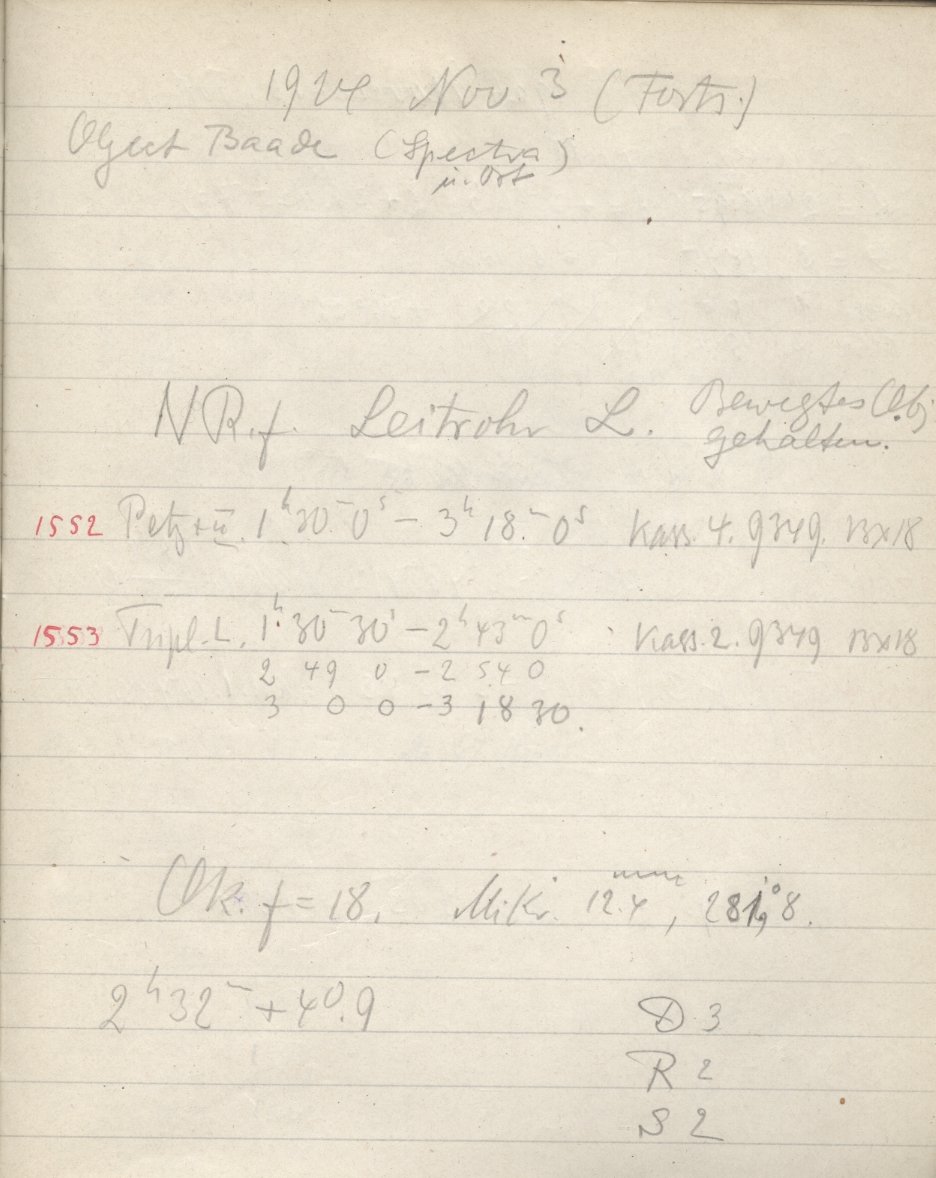 1924 Nov. 3 (Forts.)
Object Baade (Spectra
u. Ort)
NR.f. Leitrohr L. Bewegtes Obj.
gehalten.
1552 Petz. 1h 30m 0s – 3h 18m 0s Kass. 4. 9349. 13x18
1553 Tripl. L. 1h 30m 30s – 2h 43m 0s Kass. 2. 9349 13x18
2 49 0 – 2 54 0
3 0 0 – 3 18 30.
Ok. f = 18. Mikr. 12.4mm, 281°,8.
2h 32m + 4°.9
D 3
R 2
S 2